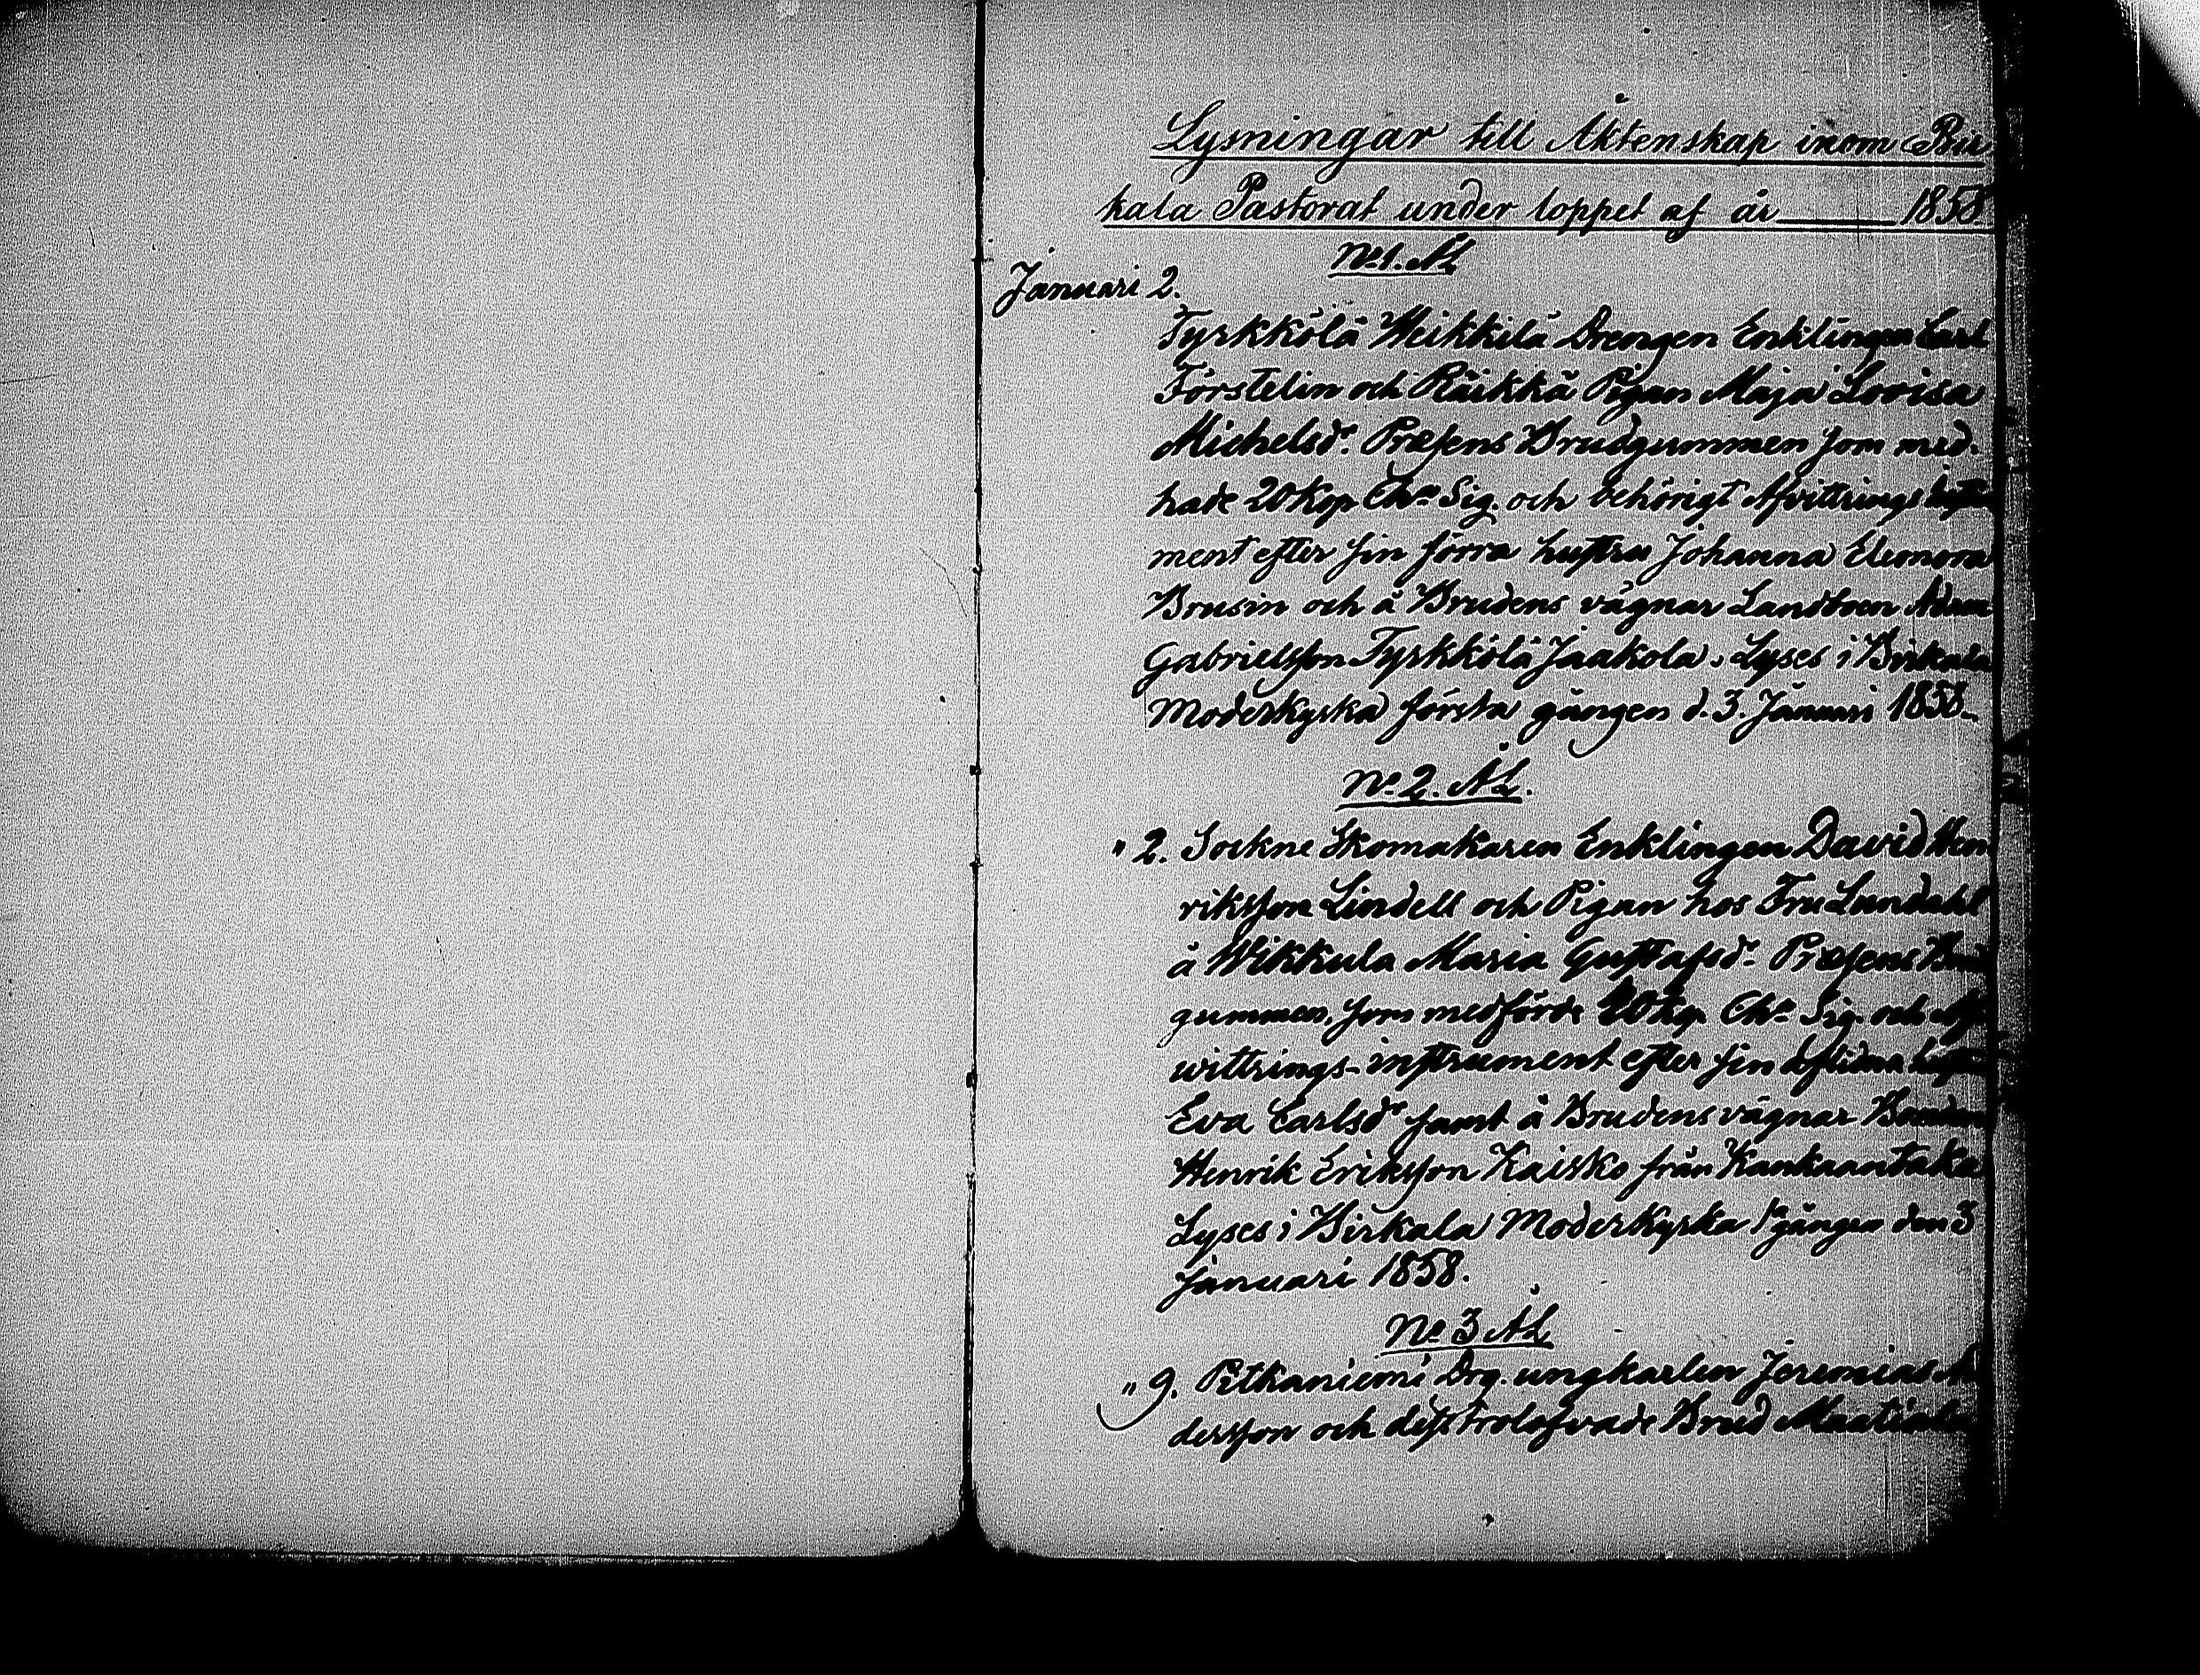 Lysningar till Äktenskap inom Bir
kala Pastorat under loppet af år 1858
No 1. ÄL
Januari 2.
Tyrkkölä Heikkilä Drengen Enklingen Carl
Forstelin och Räikkä Pigan Maja Lovisa
Michelsdr. Præsens Brudgummen som med-
hade 20 Kop Cha Sig. och behörigt Afvittrings
ment efter sin förra hustru Johanna Eleonora
Brusin och å Brudens vägnar Landboen Adam
Gabrielsson Tyrkkölä Jaakola. Lyses i Birkala
Moderkyrka första gången d. 3. Januari 1858.
No 2. ÄL.
" 2. Sockne Skomakaren Enklingen David Hen
riksson Lindell och Pigan hos Fru Lundahl
å Wikkula Maria Gustafsdr. Præsens Brud
gummen, som medförde 20 kop Cha Sig. och Af
wittrings-instrument efter sin aflidna hustru
Eva Carlsdr samt å Brudens vägnar Bonden
Henrik Eriksson Kaisko från Kankaantaka
Lyses i Birkala Moderkyrka 1a gången den 3
Januari 1858.
No 3 ÄL
" 9. Pitkäniemi Drg. ungkarlen Jeremias
dersson och dess trolofvade Brud